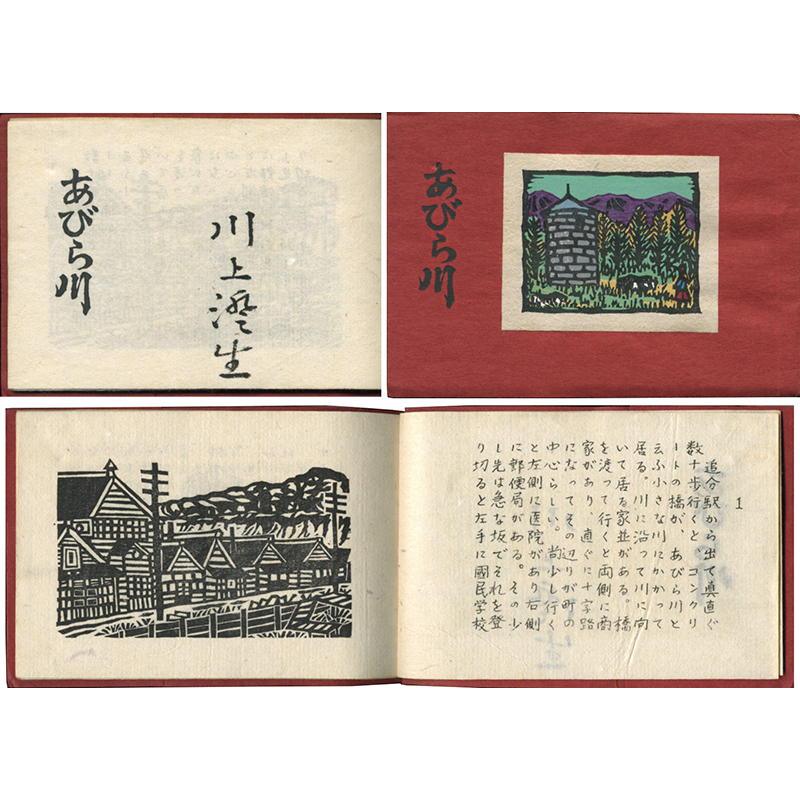 あびら川
川上澄生
あびら川
1
追分駅から出て真直ぐ
数十歩行くとコンクリ
ートの橋が、あびら川と
云ふ小さな川にかかって
居る。川に沿って川に向
いて居る家並がある。橋
を渡って行くと両側に商
家があり、直ぐに十字路
になってその辺りが町の
中心らしい。尚少し行く
と左側に医院があり右側
に郵便局がある。その少
し先は急な坂でそれを登
り切ると左手に國民学校